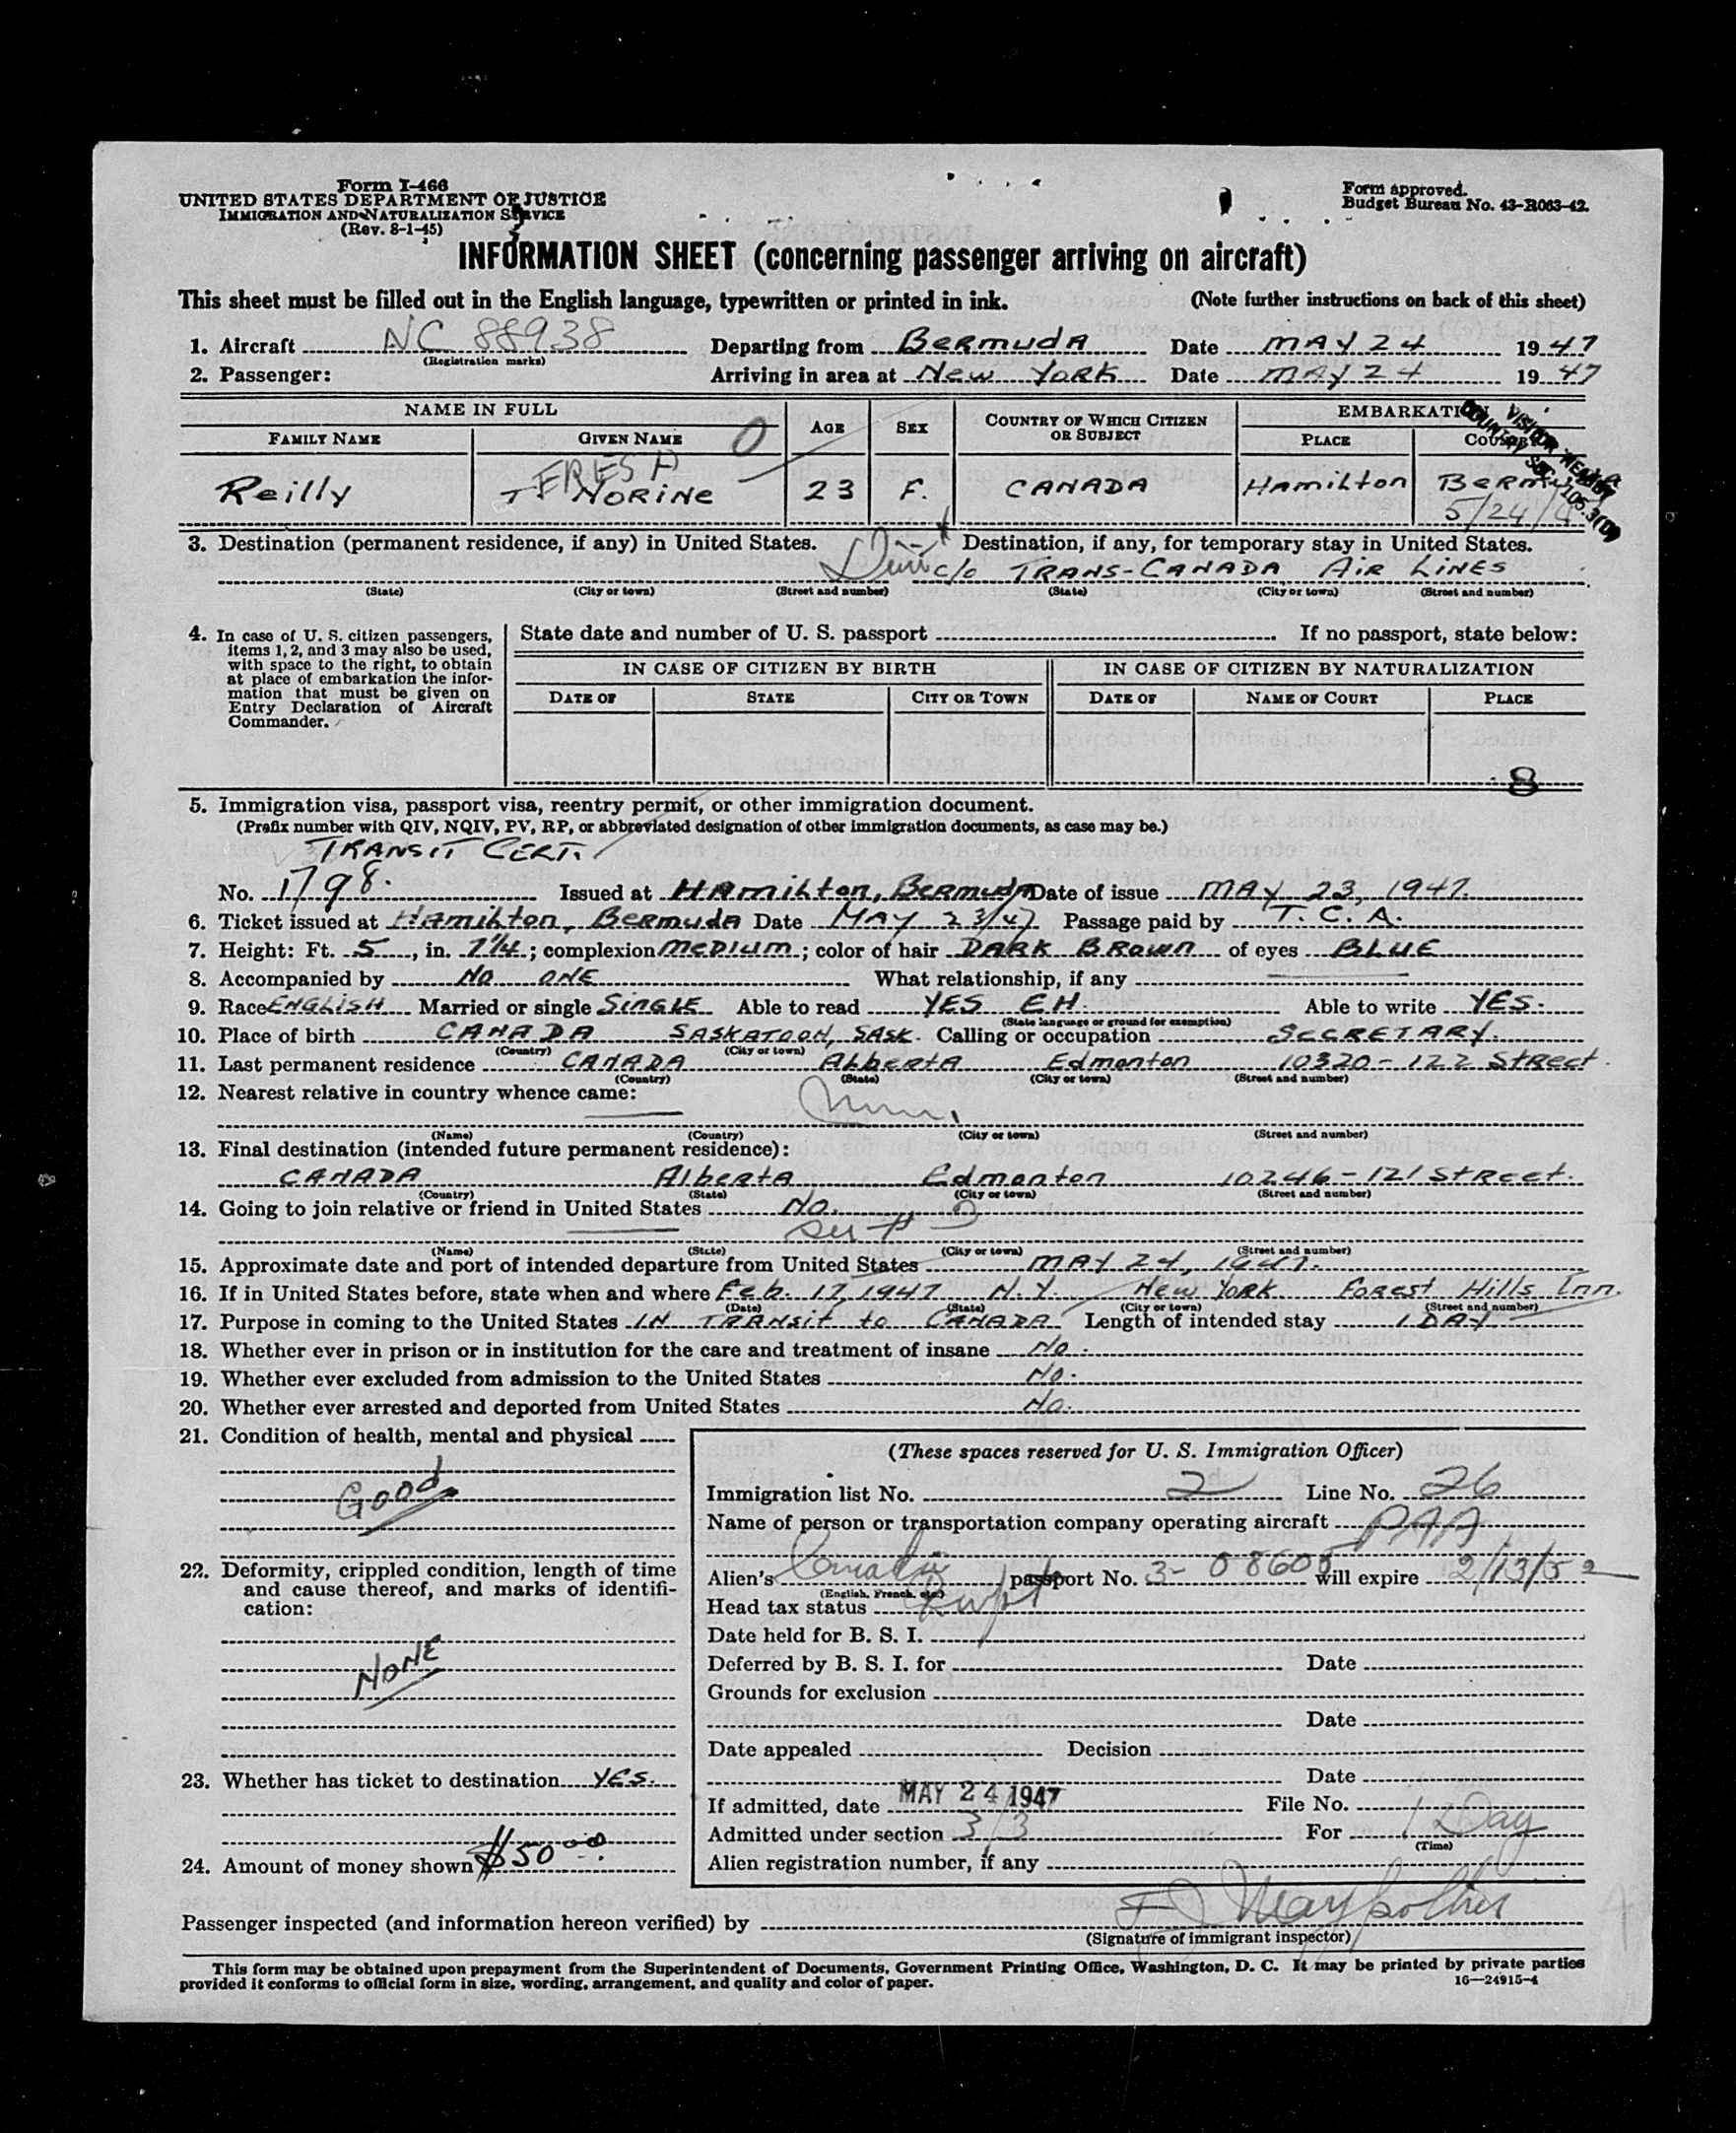 Form I-466
UNITED STATES DEPARTMENT OF JUSTICE
IMMIGRATION AND NATURALIZATION SERVICE
(Rev. 8-1-45)
Form approved.
Budget Bureau No. 43-R063-42.
INFORMATION SHEET (concerning passenger arriving on aircraft)
This sheet must be filled out in the English language, typewritten or printed in ink. (Note further instructions on back of this sheet)
1. Aircraft NC 88938 Departing from Bermuda Date MAY 24 1947
(Registration marks)
2. Passenger: Arriving in area at New York Date MAY 24 1947
NAME IN FULL AGE SEX COUNTRY OF WHICH CITIZEN OR SUBJECT EMBARKATION
FAMILY NAME GIVEN NAME PLACE COUNTRY
Reilly TERESA NORINE 23 F. CANADA Hamilton Bermuda
5/24/47
3. Destination (permanent residence, if any) in United States. Destination, if any, for temporary stay in United States.
c/o TRANS-CANADA AIR LINES
(State) (City or town) (Street and number) (State) (City or town) (Street and number)
4. In case of U. S. citizen passengers, items 1, 2, and 3 may also be used, with space to the right, to obtain at place of embarkation the information that must be given on Entry Declaration of Aircraft Commander.
State date and number of U. S. passport If no passport, state below:
IN CASE OF CITIZEN BY BIRTH IN CASE OF CITIZEN BY NATURALIZATION
DATE OF STATE CITY OR TOWN DATE OF NAME OF COURT PLACE
8
5. Immigration visa, passport visa, reentry permit, or other immigration document.
(Prefix number with QIV, NQIV, PV, RP, or abbreviated designation of other immigration documents, as case may be.)
TRANSIT CERT.
No. 1798. Issued at HAmilton, Bermuda Date of issue MAY 23, 1947.
6. Ticket issued at Hamilton, Bermuda Date MAY 23/47 Passage paid by T. C. A.
7. Height: Ft. 5, in. 7¼; complexion MEDIUM; color of hair DARK BROWN of eyes BLUE
8. Accompanied by NO ONE What relationship, if any
9. Race ENGLISH Married or single SINGLE Able to read YES EH. Able to write YES.
(State language or ground for exemption)
10. Place of birth CANADA SASKATOON, SASK. Calling or occupation SECRETARY.
(Country) (City or town)
11. Last permanent residence CANADA Alberta Edmonton 10320-122 Street.
(Country) (State) (City or town) (Street and number)
12. Nearest relative in country whence came:
(Name) (Country) (City or town) (Street and number)
13. Final destination (intended future permanent residence):
CANADA Alberta Edmonton 10246-121 Street.
(Country) (State) (City or town) (Street and number)
14. Going to join relative or friend in United States No.
(Name) (State) (City or town) (Street and number)
15. Approximate date and port of intended departure from United States MAY 24, 1947.
16. If in United States before, state when and where Feb. 17, 1947 N.Y. New York Forest Hills Inn.
(Date) (State) (City or town) (Street and number)
17. Purpose in coming to the United States IN TRANSIT to CANADA Length of intended stay 1 DAY
18. Whether ever in prison or in institution for the care and treatment of insane No.
19. Whether ever excluded from admission to the United States No.
20. Whether ever arrested and deported from United States No.
21. Condition of health, mental and physical
Good
22. Deformity, crippled condition, length of time and cause thereof, and marks of identification:
NONE
23. Whether has ticket to destination YES.
24. Amount of money shown $50.00.
(These spaces reserved for U. S. Immigration Officer)
Immigration list No. 2 Line No. 26
Name of person or transportation company operating aircraft PAA
Alien's Canadian passport No. 3-08605 will expire 2/13/52
(English, French, etc.)
Head tax status
Date held for B. S. I.
Deferred by B. S. I. for Date
Grounds for exclusion
Date
Date appealed Decision
Date
If admitted, date MAY 24 1947 File No.
Admitted under section 3/3 For 1 Day
(Time)
Alien registration number, if any
Passenger inspected (and information hereon verified) by
(Signature of immigrant inspector)
This form may be obtained upon prepayment from the Superintendent of Documents, Government Printing Office, Washington, D. C. It may be printed by private parties
provided it conforms to official form in size, wording, arrangement, and quality and color of paper. 16—24915-4